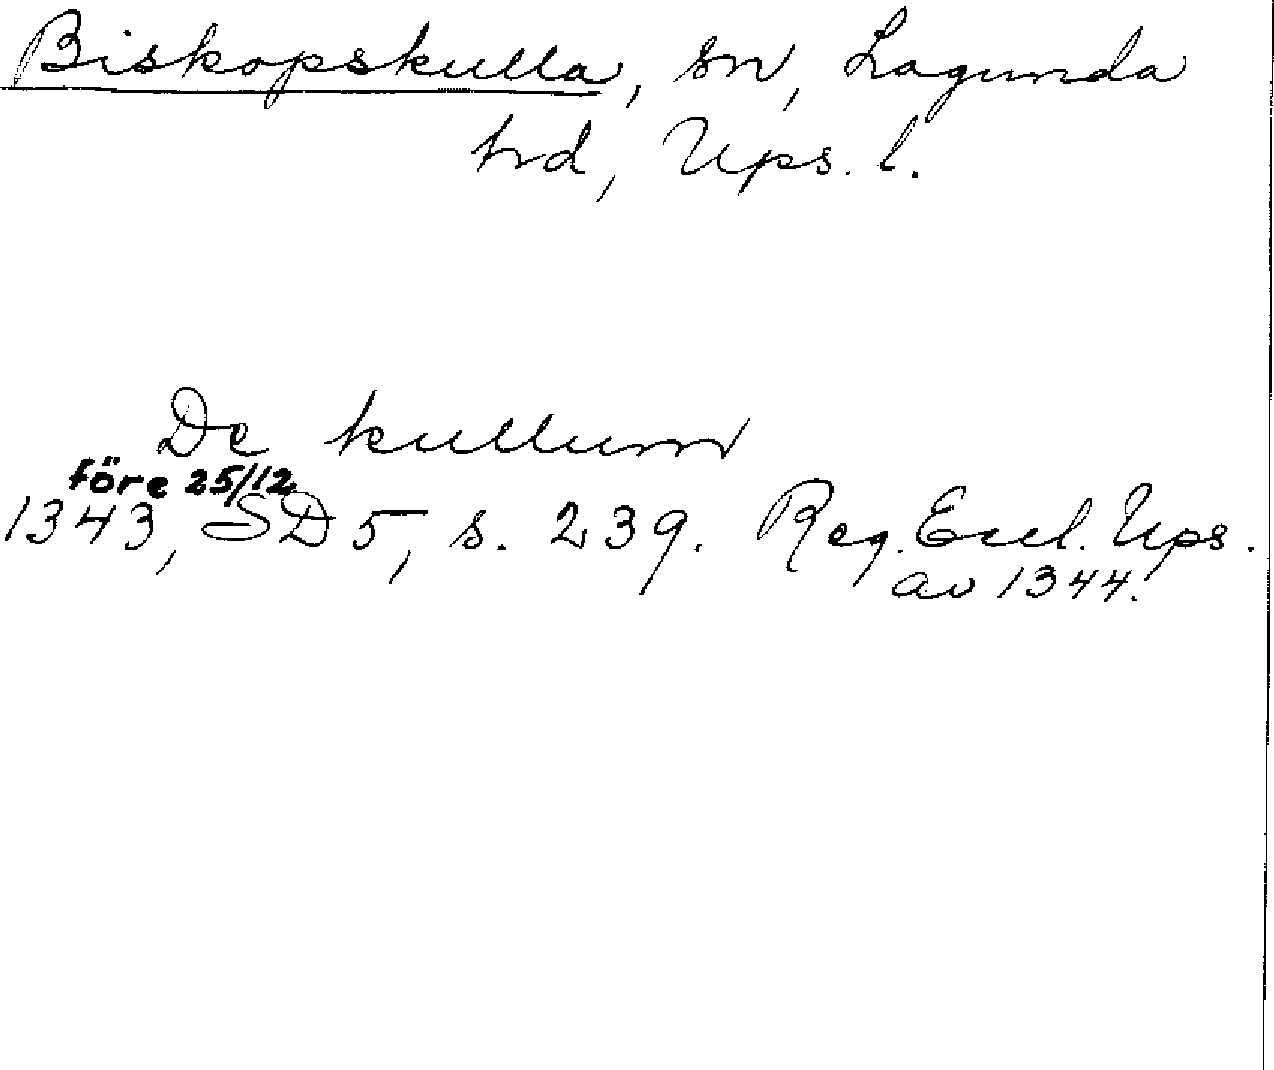 Biskopskulla, sn, Lagunda
hrd, Ups. l.
De kullum
före 25/12
1343, SD 5, s. 239. Reg. Eccl. Ups.
av 1344.